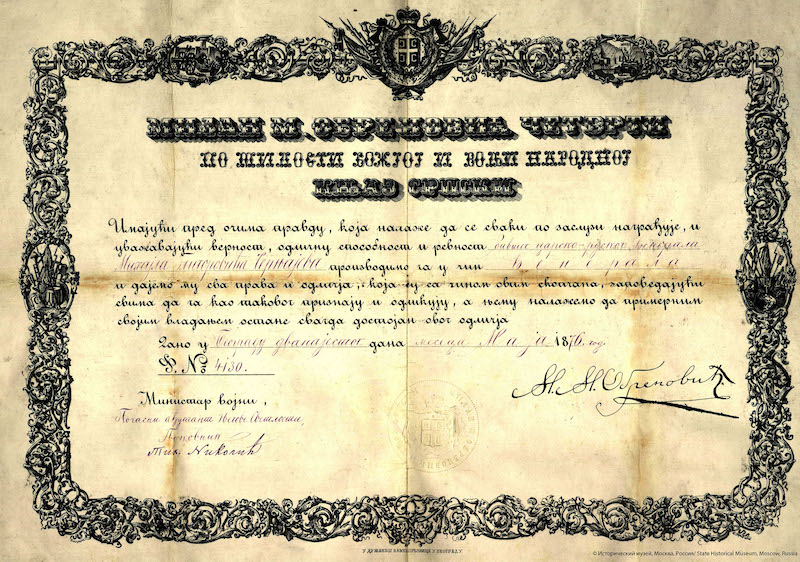 МИЛАН М. ОБРЕНОВИЋ ЧЕТВРТИ
ПО МИЛОСТИ БОЖЈОЈ И ВОЉИ НАРОДНОЈ
КЊАЗ СРПСКИ
Имајући пред очима правду, која налаже да се сваки по заслузи награђује, и
уважавајући верност, одличну способност и ревност бившег царско-руског
Михаила Черњајева производимо га у чин Ђенерала
и дајемо му сва права и одличја, која су с чином овим скопчана, заповедајући
свима да га као таковог признају и одликују, а њему налажемо да примерним
својим владањем остане свагда достојан овог одличја
Дано у Београду дванајестог дана месеца Маја 1876. год.
Ф. № 4130.
М. М. Обреновић
Министар војни,
Почасни ађутант Његове Светлости,
Пуковник
Тих. Николић
У ДРЖАВНОЈ КАМЕНОРЕЗНИЦИ У БЕОГРАДУ.
© Исторический музей, Москва, Россия/ State Historical Museum, Moscow, Russia